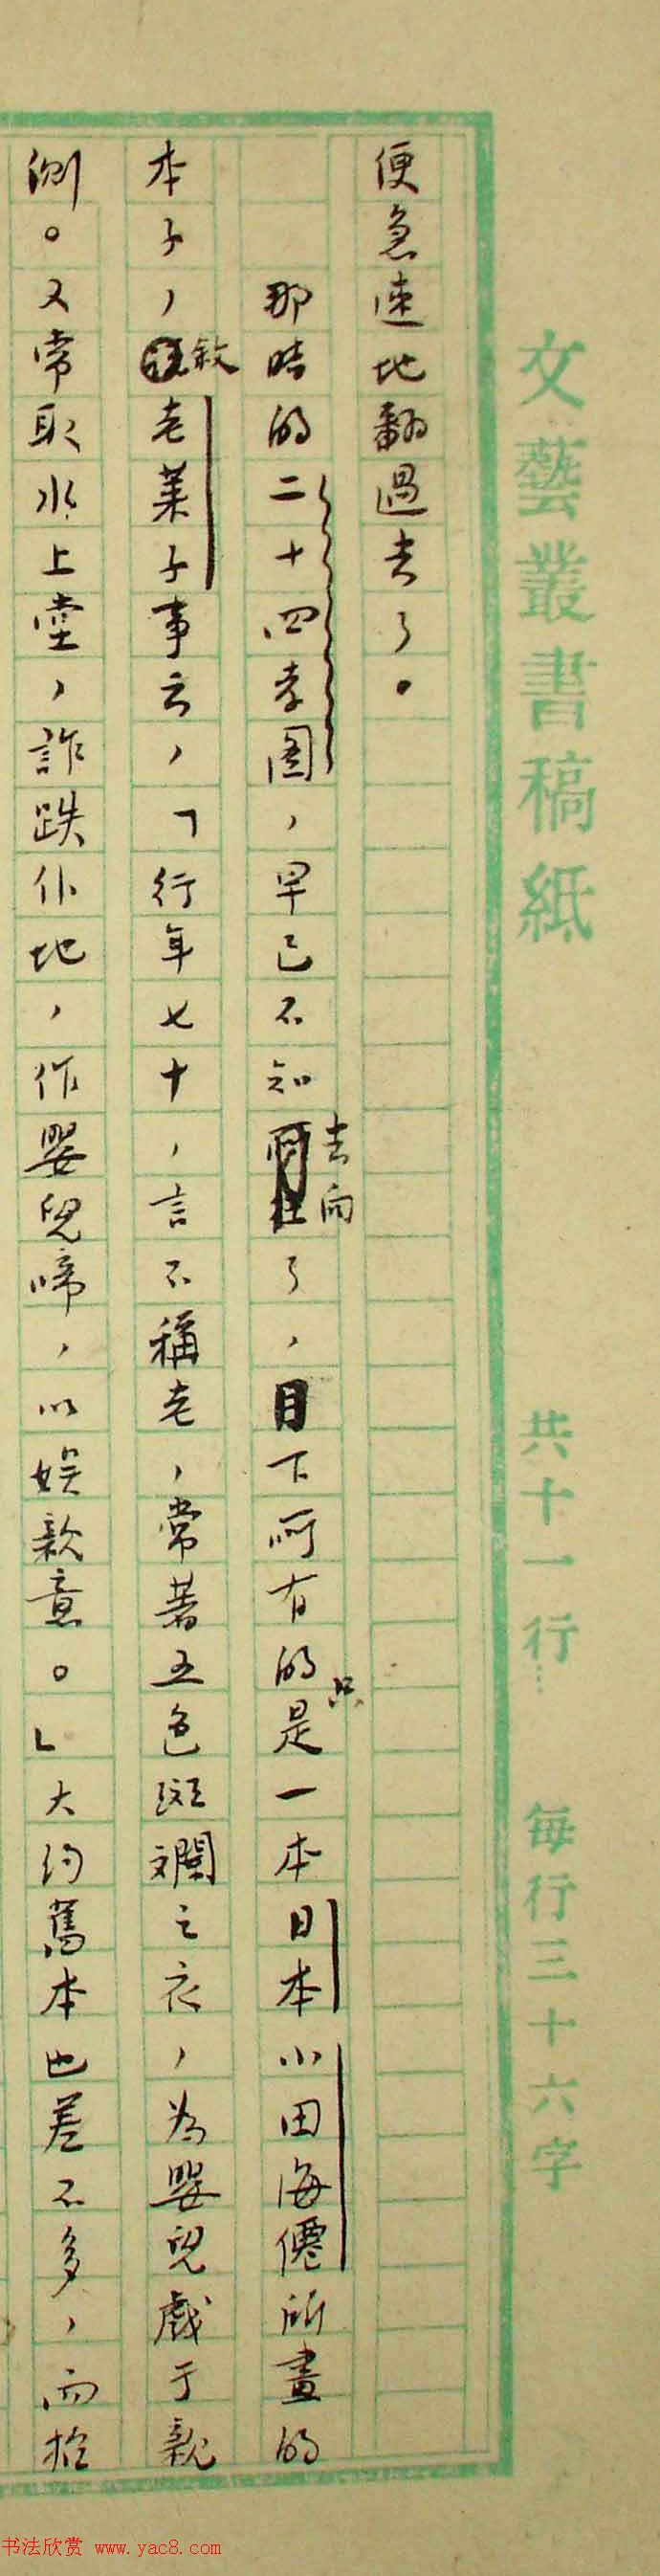 文藝叢書稿紙 共十一行 每行三十六字
便急速地翻過去了。
那時的二十四孝圖，早已不知去向了，目下所有的只是一本日本小田海僊所畫的
本子，敘老萊子事云，「行年七十，言不稱老，常著五色斑斕之衣，為嬰兒戲于親
側。又常取水上堂，詐跌仆地，作嬰兒啼，以娛親意。」大約舊本也差不多，而招
书法欣赏 www.yac8.com